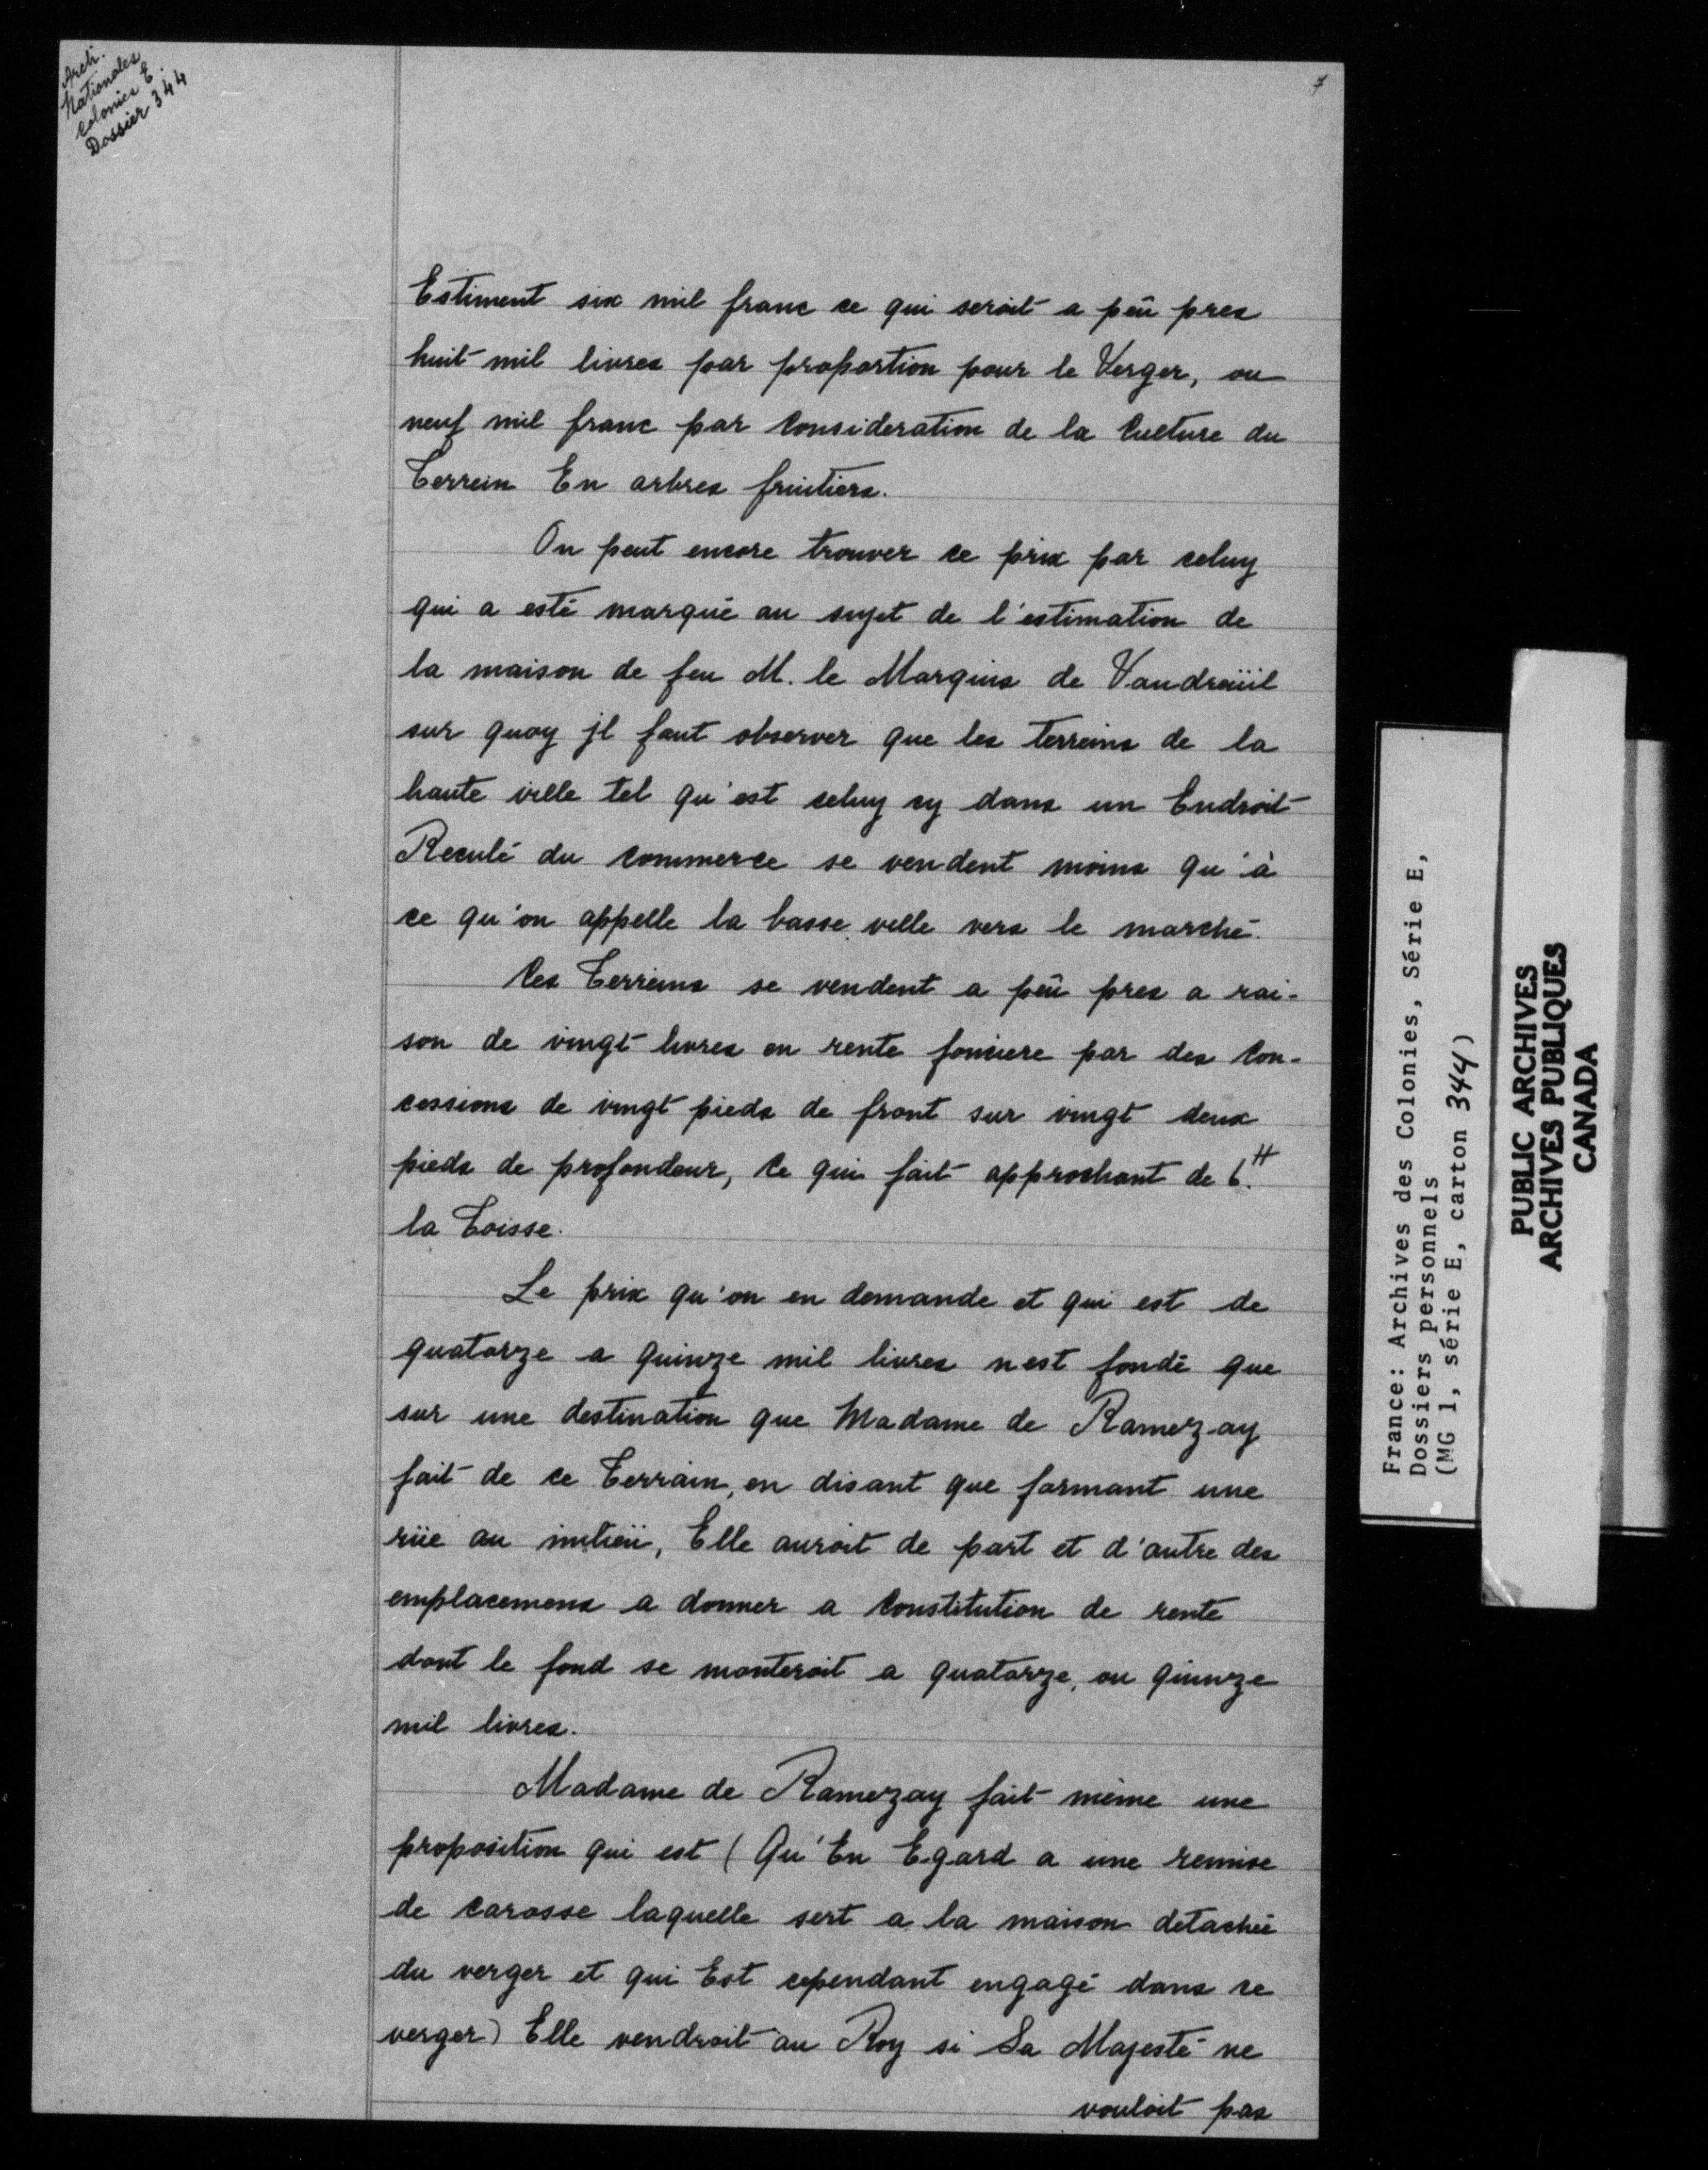 Arch.
Nationales
Colonies E.
Dossier 344
7
Estiment six mil franc ce qui seroit a peû pres
huit mil livres par proportion pour le Verger, ou
neuf mil franc par Consideration de la Culture du
Terrein En arbres fruitiers.
On peut encore trouver ce prix par celuy
qui a esté marqué au sujet de l'estimation de
la maison de feu M. le Marquis de Vaudreüil
sur quoy jl faut observer que les terreins de la
haute ville tel qu'est celuy cy dans un Endroit
Reculé du commerce se vendent moins qu'à
ce qu'on appelle la basse ville vers le marché.
Ces Terreins se vendent a peû pres a rai-
son de vingt livres en rente fonciere par des Con-
cessions de vingt pieds de front sur vingt deux
pieds de profondeur, Ce qui fait approchant de 6.#
la Toisse.
Le prix qu'on en demande et qui est de
quatorze a quinze mil livres n'est fondé que
sur une destination que Madame de Ramezay
fait de ce Terrain, en disant que formant une
rüe au milieü, Elle auroit de part et d'autre des
emplacemens a donner a Constitution de rente
dont le fond se monteroit a quatorze, ou quinze
mil livres.
Madame de Ramezay fait même une
proposition qui est (Qu'En Egard a une remise
de carosse laquelle sert a la maison detachée
du verger et qui Est cependant engagé dans ce
verger) Elle vendroit au Roy si Sa Majesté ne
vouloit pas
France: Archives des Colonies, Série E,
Dossiers personnels
(MG 1, série E, carton 344)
PUBLIC ARCHIVES
ARCHIVES PUBLIQUES
CANADA